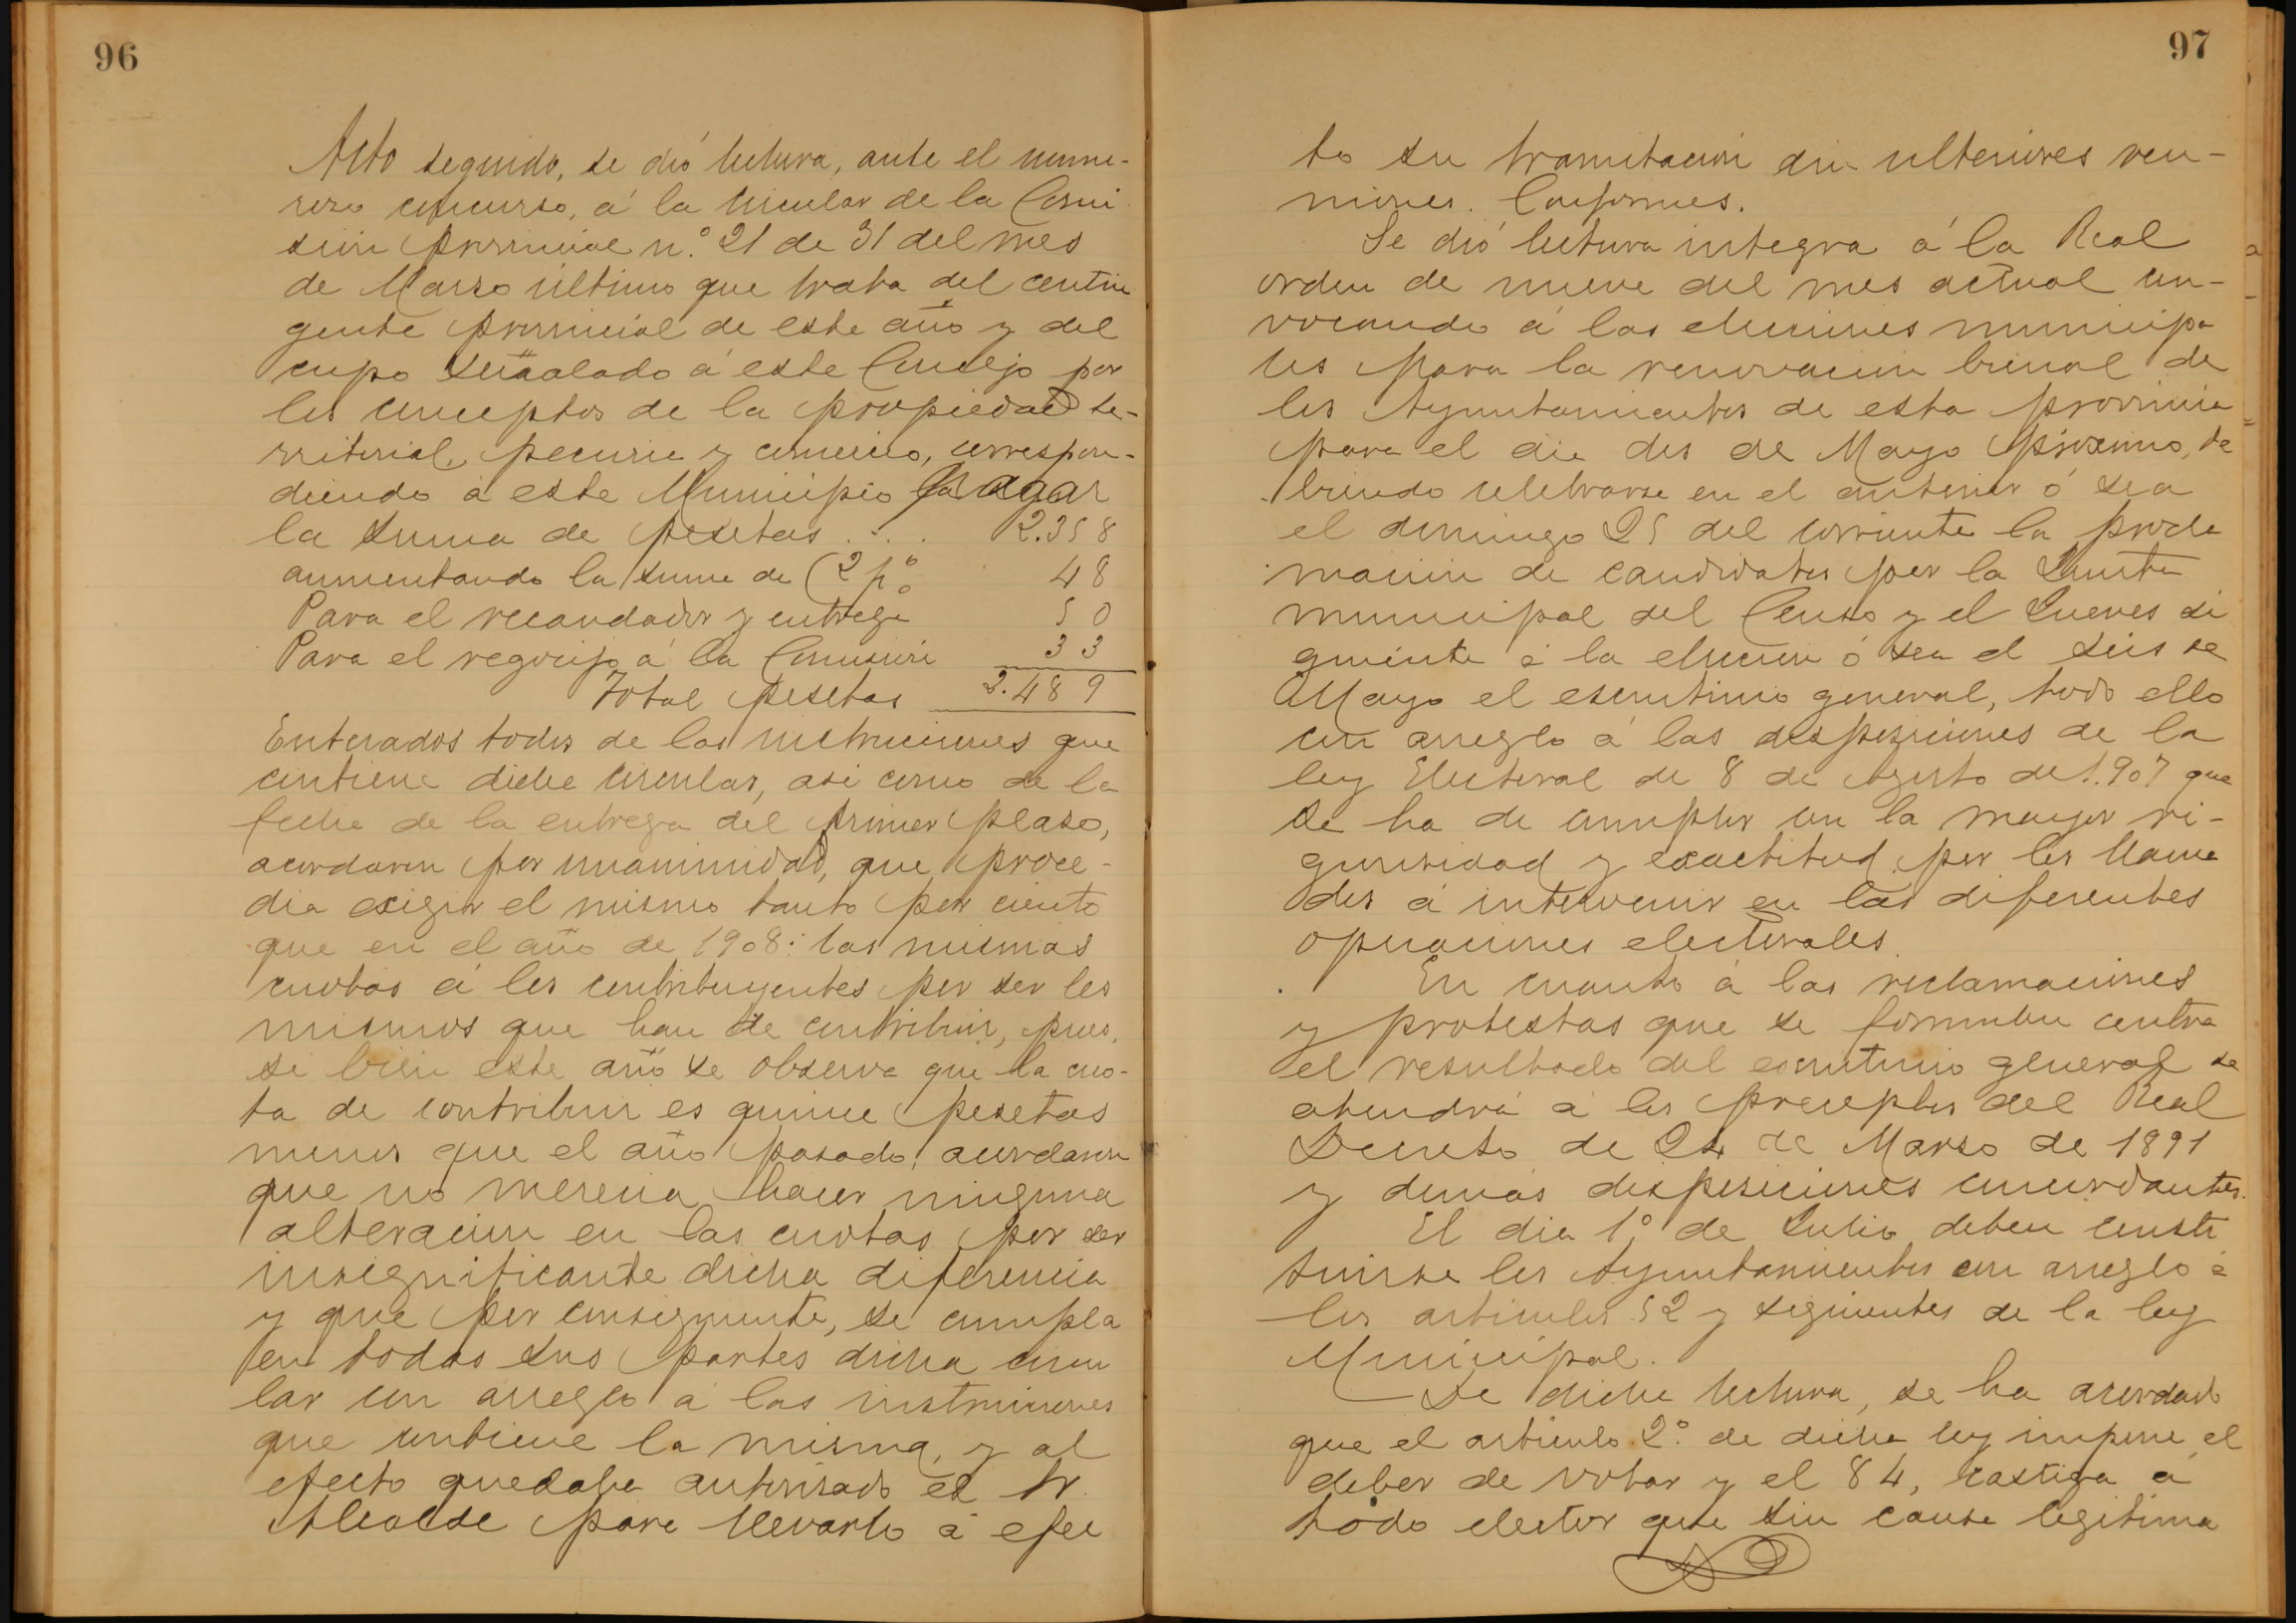 96
Acto seguido, se dió lectura, ante el nume-
roso concurso, á la circular de la Comi
sión provincial n.º 21 de 31 del mes
de Marzo último que trata del contin
gente provincial de este año y del
cupo señaalado á este Concejo por
los conceptos de la propiedad te-
rritorial, pecuria y comercio, correspon-
diendo á este Municipio pagar
la suma de pesetas . . . . 2.358
aumentando la suma de (2 p%  48
Para el recaudador y entrega 50
Para el regocijo á la Comisión 33
Total pesetas 2.489
Enterados todos de las instrucciones que
contiene dicha circular, asi como de la
fecha de la entrega del primer plazo,
acordaron por unanimidad, que proce-
dia exigir el mismo tanto por ciento
que en el año de 1908: las mismas
cuotas á los contribuyentes por ser los
mismos que han de contribuir, pues,
si bien este año se observa que la cuo-
ta de contribuir es quince pesetas
menos que el año pasado, acordaron
que no merecia hacer ninguna
alteracion en las cuotas por ser
insignificante dicha diferencia
y que por consiguiente, se cumpla
en todas sus partes dicha circu
lar con arreglo á las instrucciones
que contiene la misma, y al
efecto quedaba autorizado el Sr.
Alcalde para llevarlo á efec
97
to su tramitación sin ulteriores reu-
niones. Conformes.
Se dió lectura integra á la Real
orden de nueve del mes actual con-
vocando á las elecciones municipa
les para la renovación bienal de
los Ayuntamientos de esta provincia
para el dia dos de Mayo próximo, de
biendo celebrarse en el anterior ó sea
el domingo 25 del corriente la procla
mación de candidatos por la Junta
municipal del Censo y el Jueves si
guiente á la elección ó sea el seis de
Mayo el escrutinio general, todo ello
con arreglo á las disposiciones de la
ley Electoral de 8 de Agosto de 1.907 que
se ha de cumplir con la mayor ri-
gurosidad y exactitud por los llama
dos á intervenir en las diferentes
operaciones electorales.
En cuanto á las reclamaciones
y protestas que se formulen contra
el resultado del escrutinio general se
atendrá á los preceptos del Real
Decreto de 24 de Marzo de 1891
y demás disposiciones concordantes.
El dia 1º de Julio deben consti
tuirse los Ayuntamientos con arreglo á
los articulos 52 y siguientes de la ley
Municipal.
De dicha lectura, se ha acordado
que el articulo 2º de dicha ley impone el
deber de votar y el 84, castiga á
todo elector que sin causa legitima